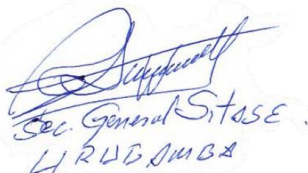 Sec. General SITASE.
URUBAMBA